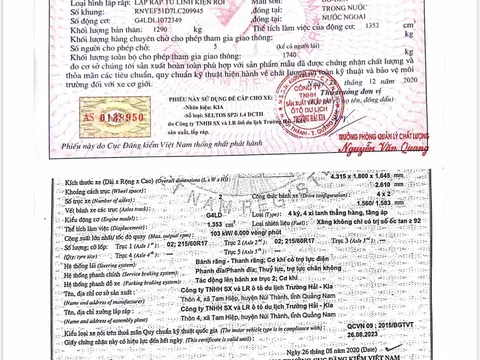 Loại hình lắp ráp: LẮP RÁP TỪ LINH KIỆN RỜI
TRONG NƯỚC
Số khung: RNYEF51D7LC209945
NƯỚC NGOÀI
Số động cơ: G4LDL1072349
Thể tích làm việc của động cơ: 1353 cm³
Khối lượng bản thân: 1290 kg
Khối lượng hàng chuyên chở cho phép tham gia giao thông: kg
Số người cho phép chở: 5 (kể cả người lái)
Khối lượng toàn bộ cho phép tham gia giao thông: 1740 kg
do cơ sở chúng tôi sản xuất hoàn toàn phù hợp với sản phẩm mẫu đã được chứng nhận chất lượng và
thỏa mãn các tiêu chuẩn, quy chuẩn kỹ thuật hiện hành về chất lượng an toàn kỹ thuật và bảo vệ môi
trường đối với xe cơ giới.
12 năm 2020
Thủ trưởng đơn vị
PHIẾU NÀY SỬ DỤNG ĐỂ CẤP CHO XE:
- Nhãn hiệu: KIA
- Số loại: SELTOS SP2i 1.4 DCTH
do Công ty TNHH SX và LR ô tô du lịch Trường Hải - KIA
sản xuất, lắp ráp.
AS 0138950
CÔNG TY
TNHH
SẢN XUẤT VÀ LẮP RÁP
ÔTÔ DU LỊCH
TRƯỜNG HẢI KIA
TRƯỞNG PHÒNG QUẢN LÝ CHẤT LƯỢNG
Nguyễn Văn Quang
Phiếu này do Cục Đăng kiểm Việt Nam thống nhất phát hành
Kích thước xe (Dài x Rộng x Cao) (Overall dimensions (L x W x H)) 4.315 x 1.800 x 1.645 mm
Khoảng cách trục (Wheel space) 2.610 mm
Số trục xe (Number of axles) Công thức bánh xe (Drive configuration) 4 x 2
Vết bánh xe các trục (Axles track) 1.560/ 1.583 mm
Kiểu động cơ (Engine model) G4LD Loại (Type) 4 kỳ, 4 xi lanh thẳng hàng, tăng áp
Thể tích làm việc (Displacement) 1.353 cm³ Loại nhiên liệu (Fuel) Xăng không chì có trị số ốc tan ≥ 92
Công suất lớn nhất/ tốc độ quay (Max. output/ rpm) 103 kW/ 6.000 vòng/ phút
Số lượng; cỡ lốp: Trục 1 (Axle 1st): 02; 215/60 R17 Trục 2 (Axle 2nd): 02; 215/60R17 Trục 3 (Axle 3rd)
Hệ thống lái (Steering system) Bánh răng - Thanh răng; Cơ khí có trợ lực điện
Hệ thống phanh chính (Service braking system) Phanh đĩa/ Phanh đĩa; Thuỷ lực, trợ lực chân không
Hệ thống phanh đỗ xe (Parking braking system) Tác động lên bánh xe trục 2; Cơ khí
Tên, địa chỉ cơ sở sản xuất Công ty TNHH SX và LR ô tô du lịch Trường Hải - Kia
(Name and address of manufacturer) Thôn 4, xã Tam Hiệp, huyện Núi Thành, tỉnh Quảng Nam
Tên, địa chỉ xưởng lắp ráp Công ty TNHH SX và LR ô tô du lịch Trường Hải - Kia
(Name and address of assembly plant) Thôn 4, xã Tam Hiệp, huyện Núi Thành, tỉnh Quảng Nam
Kiểu loại xe nói trên thoả mãn Quy chuẩn kỹ thuật quốc gia (The motor vehicle type is in compliance with) QCVN 09 : 2015/BGTVT
Giấy chứng nhận này có hiệu lực đến hết ngày 26.08.2023
Ngày 26 tháng 08 năm 2020
CỤC ĐĂNG KIỂM VIỆT NAM